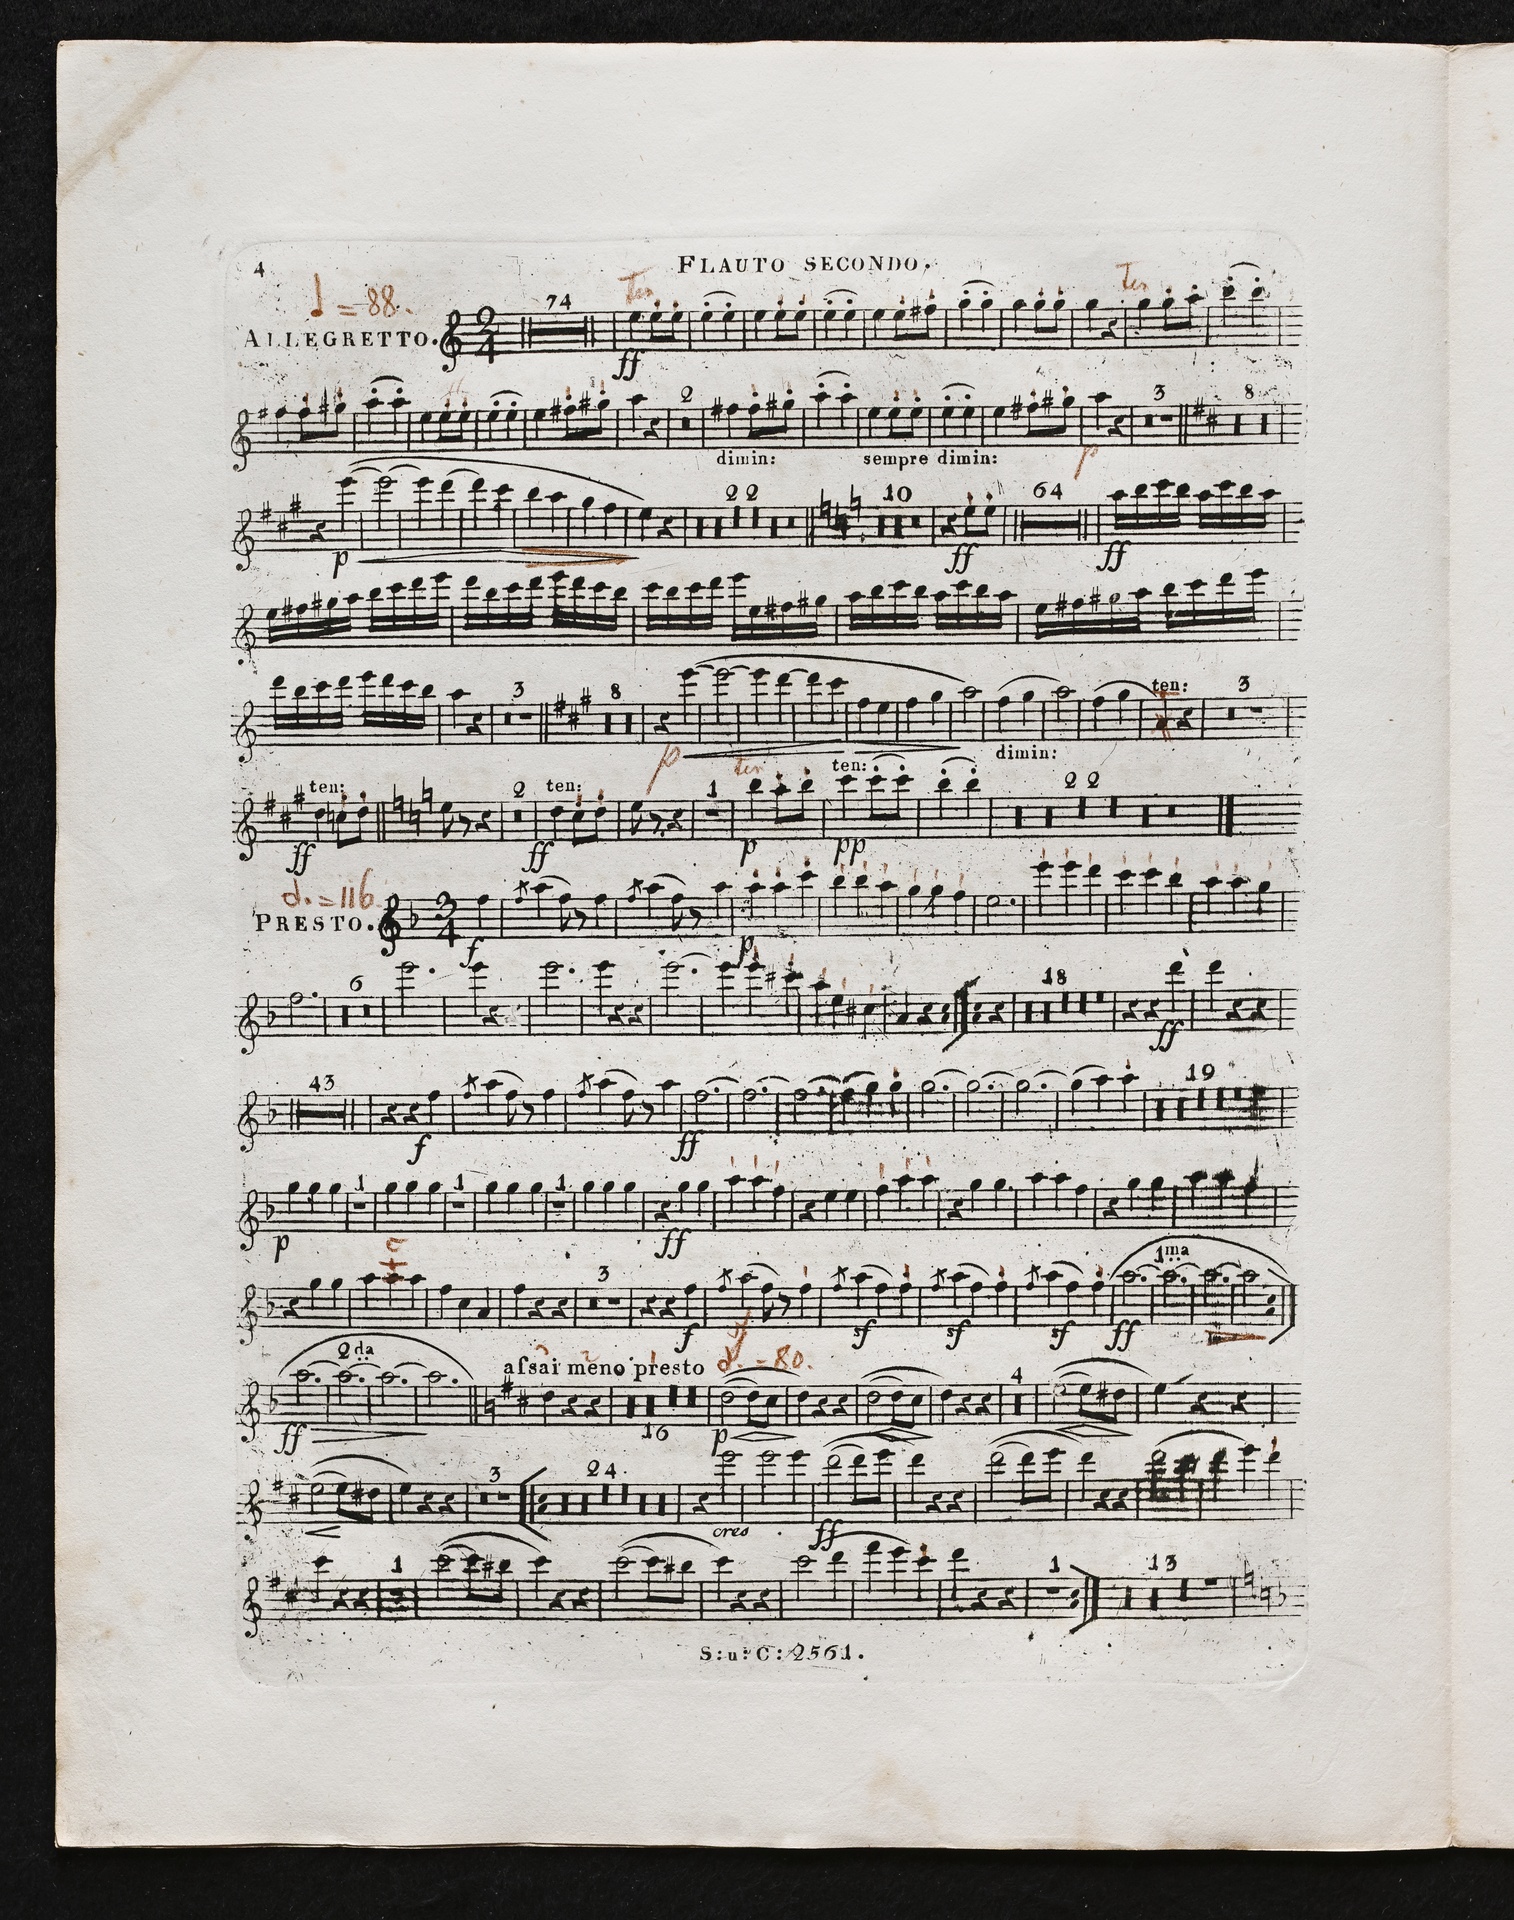 4
FLAUTO SECONDO.
ten
ten
♩ = 88.
74
ALLEGRETTO.
2
4
ff
2
3
8
dimin:
sempre dimin:
p
22
10
64
p
ff
ff
3
8
ten:
3
p
dimin:
ten:
2
ten:
ten
ten:
1
22
ff
ff
p
pp
𝅗𝅥. = 116.
PRESTO.
3
4
f
p
6
18
ff
43
19
f
ff
1
1
1
p
ff
3
1ma
f
sf
sf
sf
ff
2da
aſsai meno presto
𝅗𝅥. = 80.
4
ff
16
p
3
24.
cres
ff
1
1
13
S:u:C:2561.